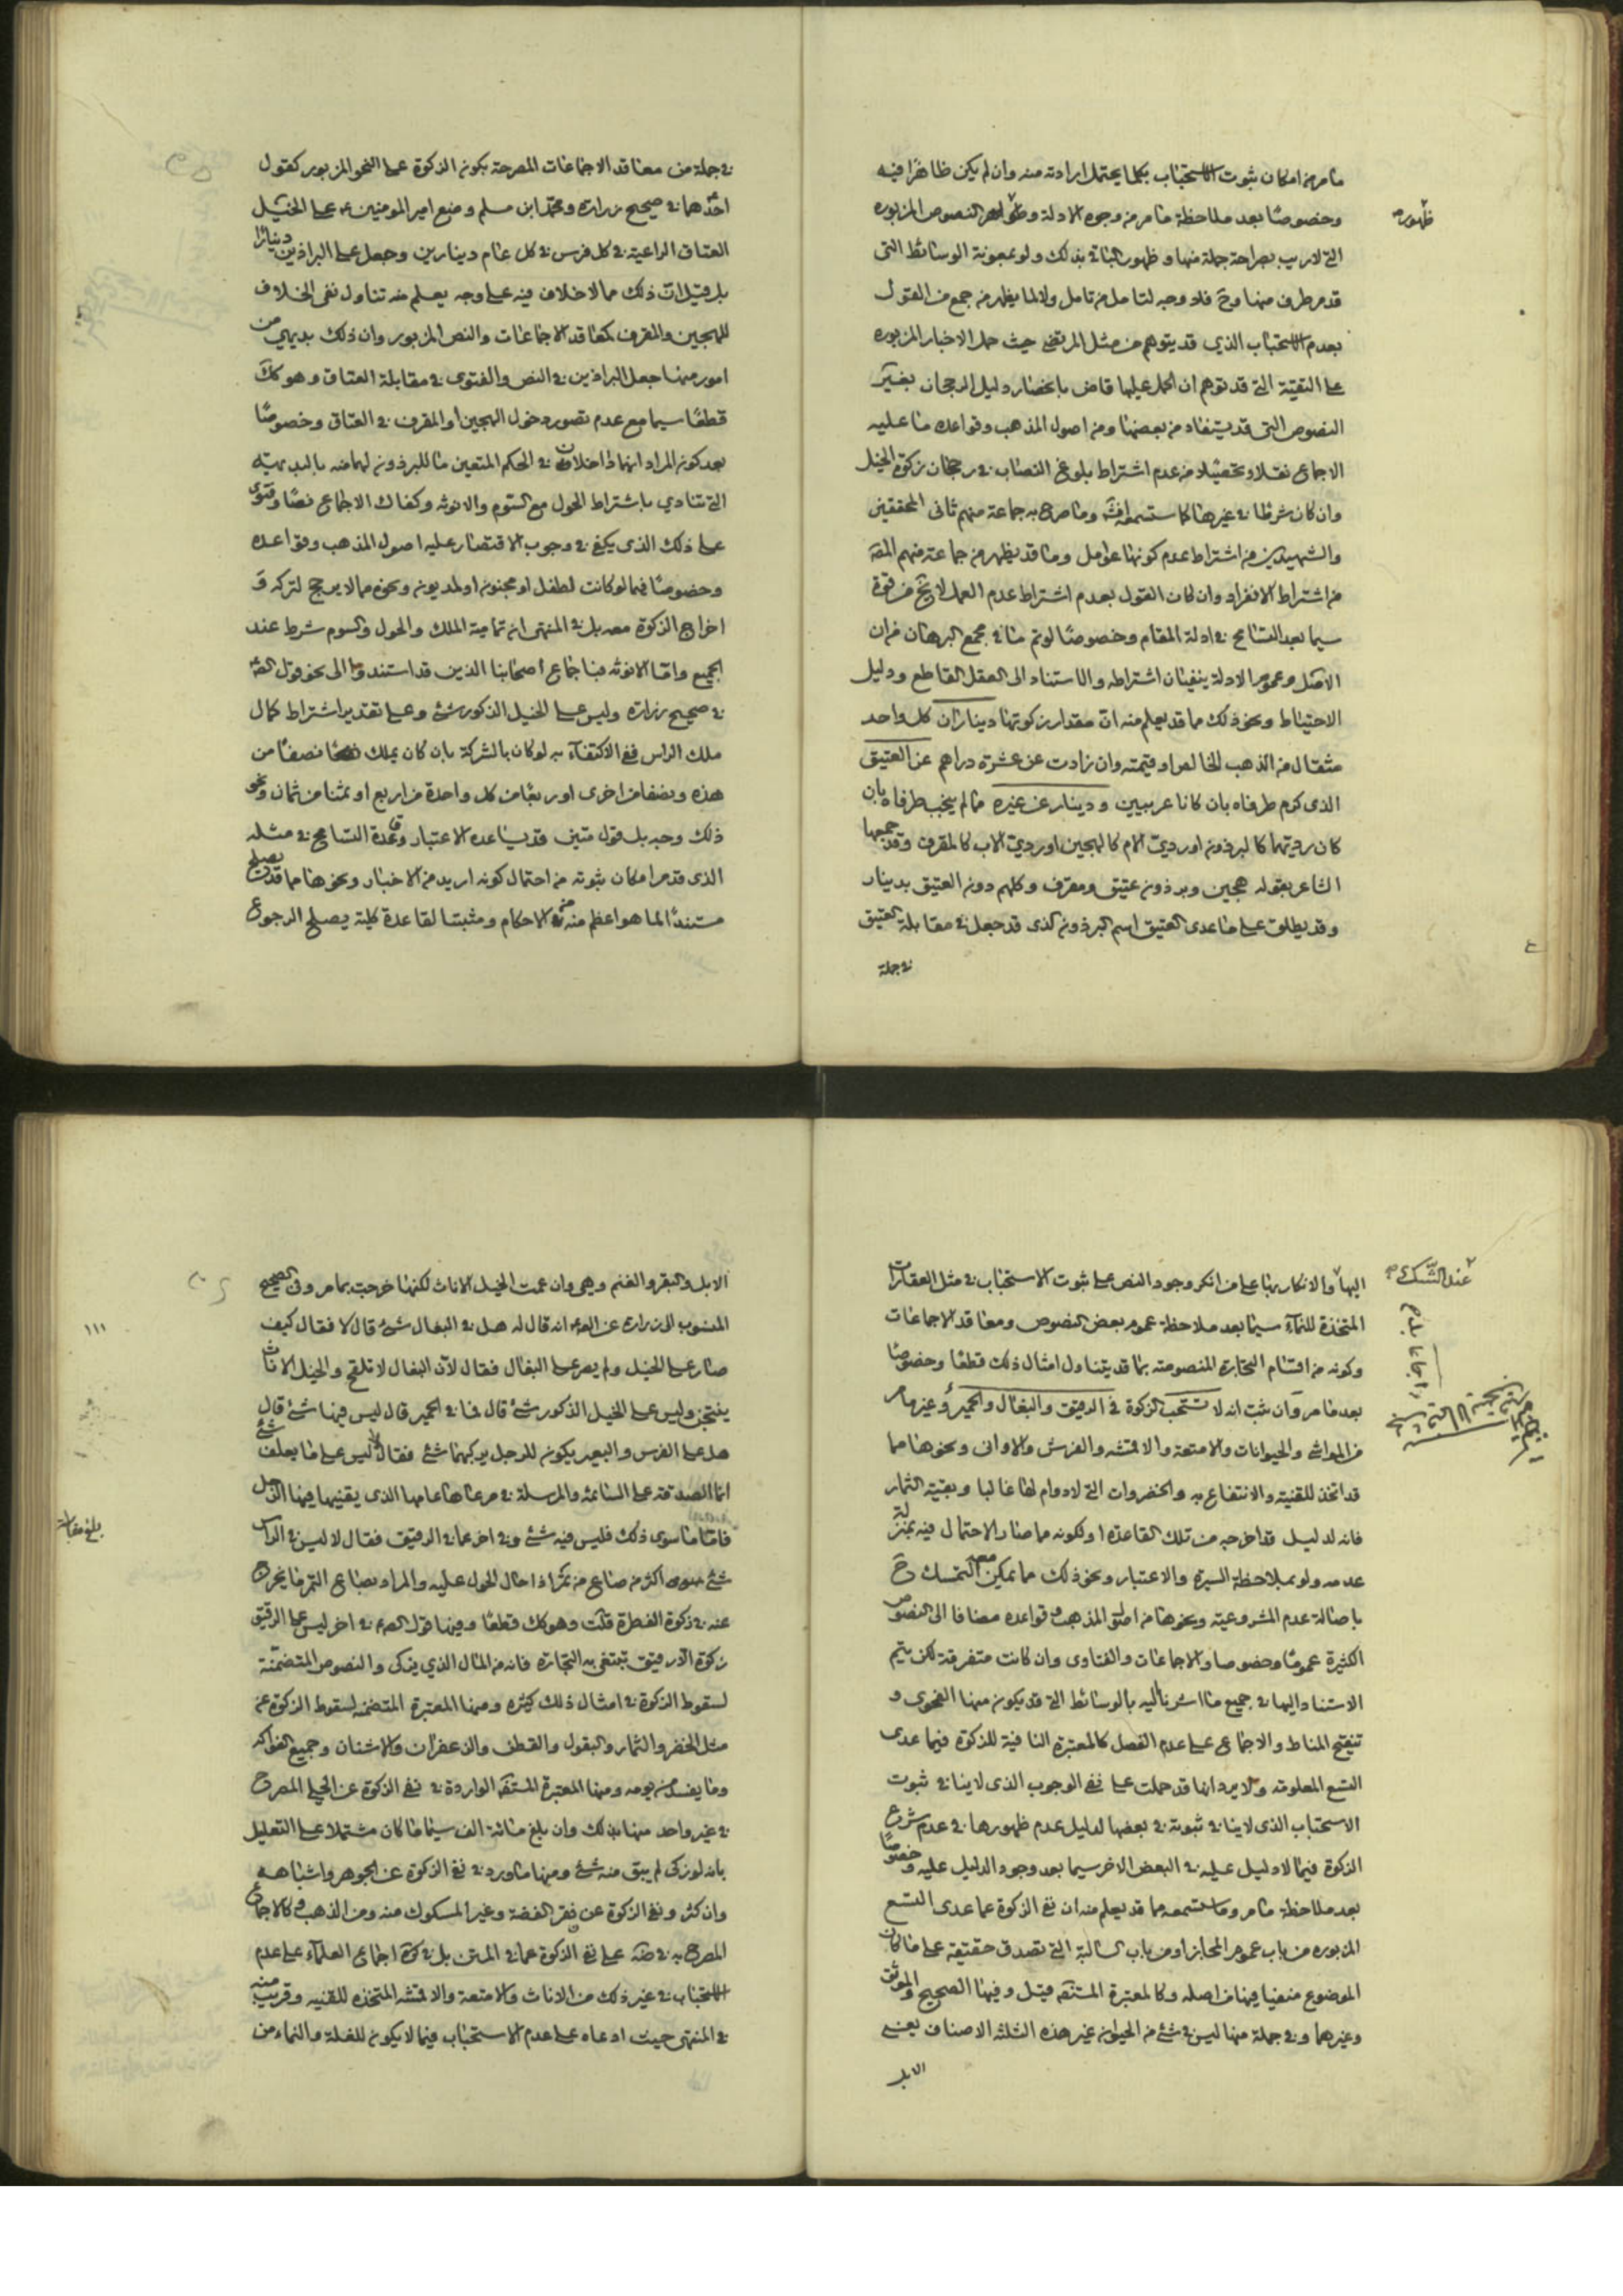 ما مر من امكان ثبوت الاستحباب بكلما يحتمل ارادته منه وان لم يكن ظاهرا فيه
وخصوصا بعد ملاحظة ما مر من وجوه الادلة وظواهر النصوص المزبوره
ظهوره
التي لا ريب بصراحة جملة منها وظهور الباقي بذلك ولو بمعونة الوسائط التي
قد مر طرف منها وح فلا وجه لتامل من تامل ولا لما يظهر من جمع من القول
بعدم الاستحباب الذي قد يتوهم من مثل المرتضى حيث حمل الاخبار المزبوره
على التقية التي قد توهم ان الحمل عليها قاض بانحصار دليل الرجحان بغير
النصوص التي قد يستفاد من بعضها ومن اصول المذهب وقواعده ما عليه
الاجماع نقلا وتحصيلا من عدم اشتراط بلوغ النصاب في رجحان زكوة الخيل
وان كان شرطا في غيرها كما ستسمعه وما صرح به جماعة منهم ثاني المحققين
والشهيدين من اشتراط عدم كونها عوامل وما قد يظهر من جماعة منهم
من اشتراط الانفراد وان كان القول بعدم اشتراط عدم العمل لا يخ من قوة
سيما بعد التسامح في ادلة المقام وخصوصا لو تم ما في مجمع البرهان من ان
الاصل وعموم الادلة ينفيان اشتراطه والاستناد الى العقل القاطع ودليل
الاحتياط ونحو ذلك مما قد يعلم منه ان مقدار زكوتها ديناران كل واحد
مثقال من الذهب الخالص او قيمته وان زادت عن عشرة دراهم عن العتيق
الذي كرم طرفاه بان كانا عربيين ودينار عن غيره مما لم ينجب طرفاه بان
كان رديهما كالبرذون او ردي الام كالهجين او ردي الاب كالمقرف وقد جمعها
الشاعر بقوله هجين وبرذون عتيق ومقرف وكلهم دون العتيق بدينار
وقد يطلق على ما عدى العتيق اسم البرذون الذي قد جعل في مقابلة العتيق
في جملة
في جملة من معاقد الاجماعات المصرحة بكون الزكوة على النحو المزبور كقول
احدهما في صحيح زراره ومحمد ابن مسلم وضع امير المومنين ع على الخيل
العتاق الراعية في كل فرس في كل عام دينارين وجعل على البراذين دينارا
بل قيل ان ذلك مما لا خلاف فيه على وجه يعلم منه تناول نفي الخلاف
للهجين والمقرف كمعاقد الاجماعات والنص المزبور وان ذلك بديهي من
امور منها جعل البراذين في النص والفتوى في مقابلة العتاق وهو كك
قطعا سيما مع عدم تصور دخول الهجين او المقرف في العتاق وخصوصا
بعد كون المراد انها داخلان في الحكم المتعين ما للبرذون لهما منه بالبديهيه
التي تنادي باشتراط الحول مع السوم والانوثه وكفاك الاجماع نصا وفتوى
على ذلك الذي يكفي في وجوب الاقتصار عليه اصول المذهب وقواعده
وخصوصا فيما لو كانت لطفل او مجنون او لمديون ونحوه مما لا يرجح لتركه
اخراج الزكوة معه بل في المنتهى ان تمامية الملك والحول والسوم شرط عند
الجميع واما الانوثه فباجماع اصحابنا الذين قد استندوا الى نحو قول
في صحيح زراره وليس على الخيل الذكور شئ وعلى تقدير اشتراط كمال
ملك الراس ففي الاكتفآء به لو كان بالشركة بان كان يملك نصفا من
هذه ونصفا من اخرى او ربعا من كل واحدة من اربع او ثمنا من ثمان ونحو
ذلك وجه بل قول متين قد يساعده الاعتبار وقاعدة التسامح في مثله
الذي قد مر امكان ثبوته من احتمال كونه اريد من الاخبار ونحوها مما قد يصلح
مستندا لما هو اعظم منه من الاحكام ومثبتا لقاعدة كلية يصلح الرجوع
اليها والانكار بها على من انكر وجود النص على ثبوت الاستحباب في مثل العقارات
عند الشك
المتخذة للنمآء سيما بعد ملاحظة عموم بعض النصوص ومعاقد الاجماعات
وكونه من اقسام التجارة المنصوصه بما قد يتناول امثال ذلك قطعا وخصوصا
بعد ما مر وان ثبت انه لا تستحب الزكوة في الرقيق والبغال والحمير وغيرها مر
من المواشي والحيوانات والامتعة والاقمشه والفرش والاواني ونحوها مما
قد اتخذ للقنية والانتفاع به والخضروات التي لا دوام لها غالبا وبقية الثمار
فانه لدليل قد اخرجه من تلك القاعدة او لكونه مما صار الاحتمال فيه بمنزلة
عدمه ولو بملاحظة السيرة والاعتبار ونحو ذلك مما يمكن معه التمسك ح
باصالة عدم المشروعيه ونحوها من اصول المذهب وقواعده مضافا الى النصوص
الكثيرة عموما وخصوصا والاجماعات والفتاوى وان كانت متفرقة لكن يتم
الاستناد اليها في جميع ما اشرنا اليه بالوسائط التي قد يكون منها الفحوى و
تنقيح المناط والاجماع على عدم الفصل كالمعتبرة النافية للزكوة فيما عدى
التسع المعلومه ولا يرد انها قد حملت على نفي الوجوب الذي لا ينافي ثبوت
الاستحباب الذي لا ينافي ثبوته في بعضها لدليل عدم ظهورها في عدم شرع
الزكوة فيما لا دليل عليه في البعض الاخر سيما بعد وجود الدليل عليه وخصوصا
بعد ملاحظة ما مر وما ستسمعه مما قد يعلم منه ان نفي الزكوة عما عدى التسع
المزبوره من باب عموم المجاز او من باب السالبة التي تصدق حقيقة على ما كان
الموضوع منفيا فيها من اصله وكالمعتبرة قيل وفيها الصحيح والموثق
وغيرهما وفي جملة منها ليس في شئ من الحيوان غير هذه الثلثه الاصناف يعني
الابل
الابل والبقر والغنم وهي وان عمت الخيل الاناث لكنها خرجت بما مر وفي الصحيح
١١١
المنسوب الى زراره عن انه قال له هل في البغال شئ قال لا فقال كيف
صار على الخيل ولم يصر على البغال فقال لان البغال لا تلقح والخيل الاناث
ينتجن وليس على الخيل الذكور شئ قال فما في الحمير قال ليس فيها شئ قال
هل على الفرس والبعير يكون للرجل يركبهما شئ فقال لا ليس على ما يعلف شئ
انما الصدقة على السائمة والمرسلة في مرعاها عامها الذي يقتنيها فيها الرجل
فاما ما سوى ذلك فليس فيه شئ وفي اخر عما في الرقيق فقال لا ليس في الراس
بلغ مقابلة
شئ اكثر من صاع من تمر اذا حال الحول عليه والمراد بصاع التمر ما يخرج
عنه في زكوة الفطرة قلت وهو كك قطعا وفيها قول في اخر ليس على الرقيق
زكوة الا رقيق تبتغى به التجارة فانه من المال الذي يزكى والنصوص المتضمنة
لسقوط الزكوة في امثال ذلك كثيره ومنها المعتبرة المتضمنه لسقوط الزكوة عن
مثل الخضر والثمار والبقول والقطن والزعفران والاشنان وجميع الفواكه
وما يفسد من يومه ومنها المعتبرة الواردة في نفي الزكوة عن الحلي المصرح
في غير واحد منها بذلك وان بلغ مائة الف سيما ما كان مشتملا على التعليل
بانه لو زكى لم يبق منه شئ ومنها ما ورد في نفي الزكوة عن الجوهر واشباهه
وان كثر ونفي الزكوة عن نقر الفضة وغير المسكوك منه ومن الذهب وكالاجماع
المصرح به في على نفي الزكوة عما في المتن بل في اجماع العلمآء على عدم
الاستحباب في غير ذلك من الاثاث والامتعة والاقمشه المتخذه للقنيه وقريب منه
في المنتهى حيث ادعاه على عدم الاستحباب فيما لا يكون للغلة والنماء من